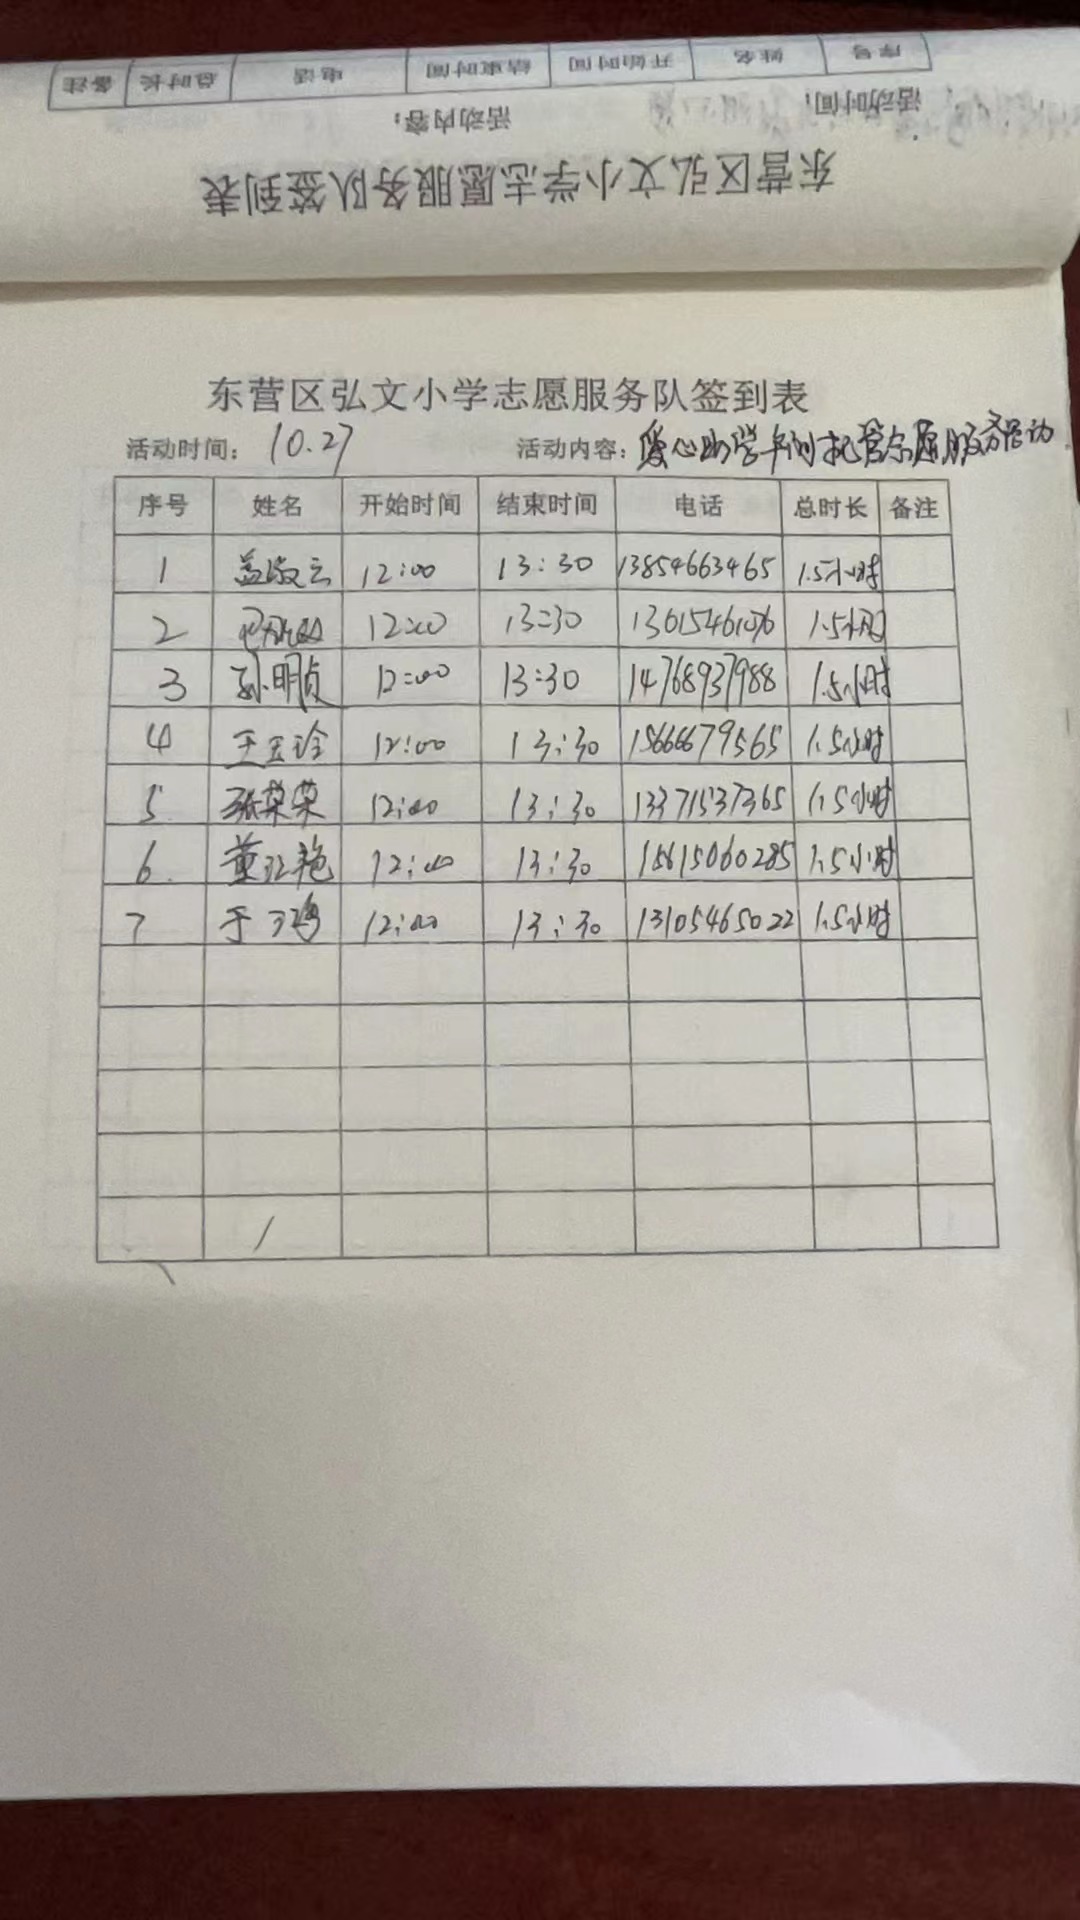 序号 姓名 开始时间 结束时间 电话 总时长 备注
活动时间： 活动内容：
东营区弘文小学志愿服务队签到表
东营区弘文小学志愿服务队签到表
活动时间： 10.27 活动内容：爱心助学午间托管志愿服务活动
序号 姓名 开始时间 结束时间 电话 总时长 备注
1 盖淑云 12:00 13:30 13854663465 1.5小时
2 12:00 13:30 13615461076 1.5小时
3 孙明贞 12:00 13:30 14768937988 1.5小时
4 王玉玲 12:00 13:30 15666679565 1.5小时
5 张荣荣 12:00 13:30 13371537365 1.5小时
6 董江艳 12:00 13:30 15615060285 1.5小时
7 于 12:00 13:30 13105465022 1.5小时